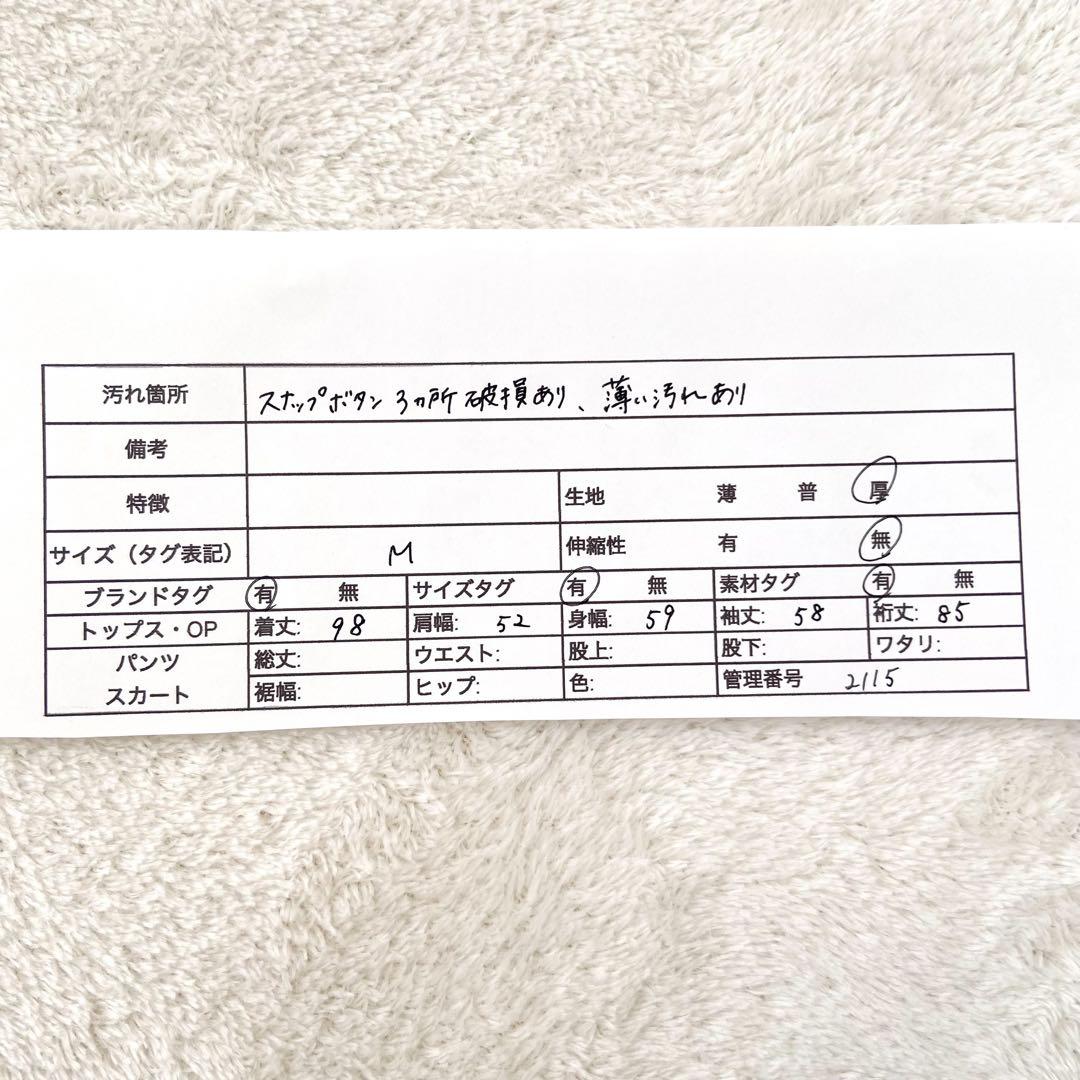 汚れ箇所 スナップボタン 3ヵ所 破損あり、薄い汚れあり
備考
特徴 生地 薄 普 厚
サイズ（タグ表記） M 伸縮性 有 無
ブランドタグ 有 無 サイズタグ 有 無 素材タグ 有 無
トップス・OP 着丈: 98 肩幅: 52 身幅: 59 袖丈: 58 裄丈: 85
パンツ 総丈: ウエスト: 股上: 股下: ワタリ:
スカート 裾幅: ヒップ: 色: 管理番号 2115